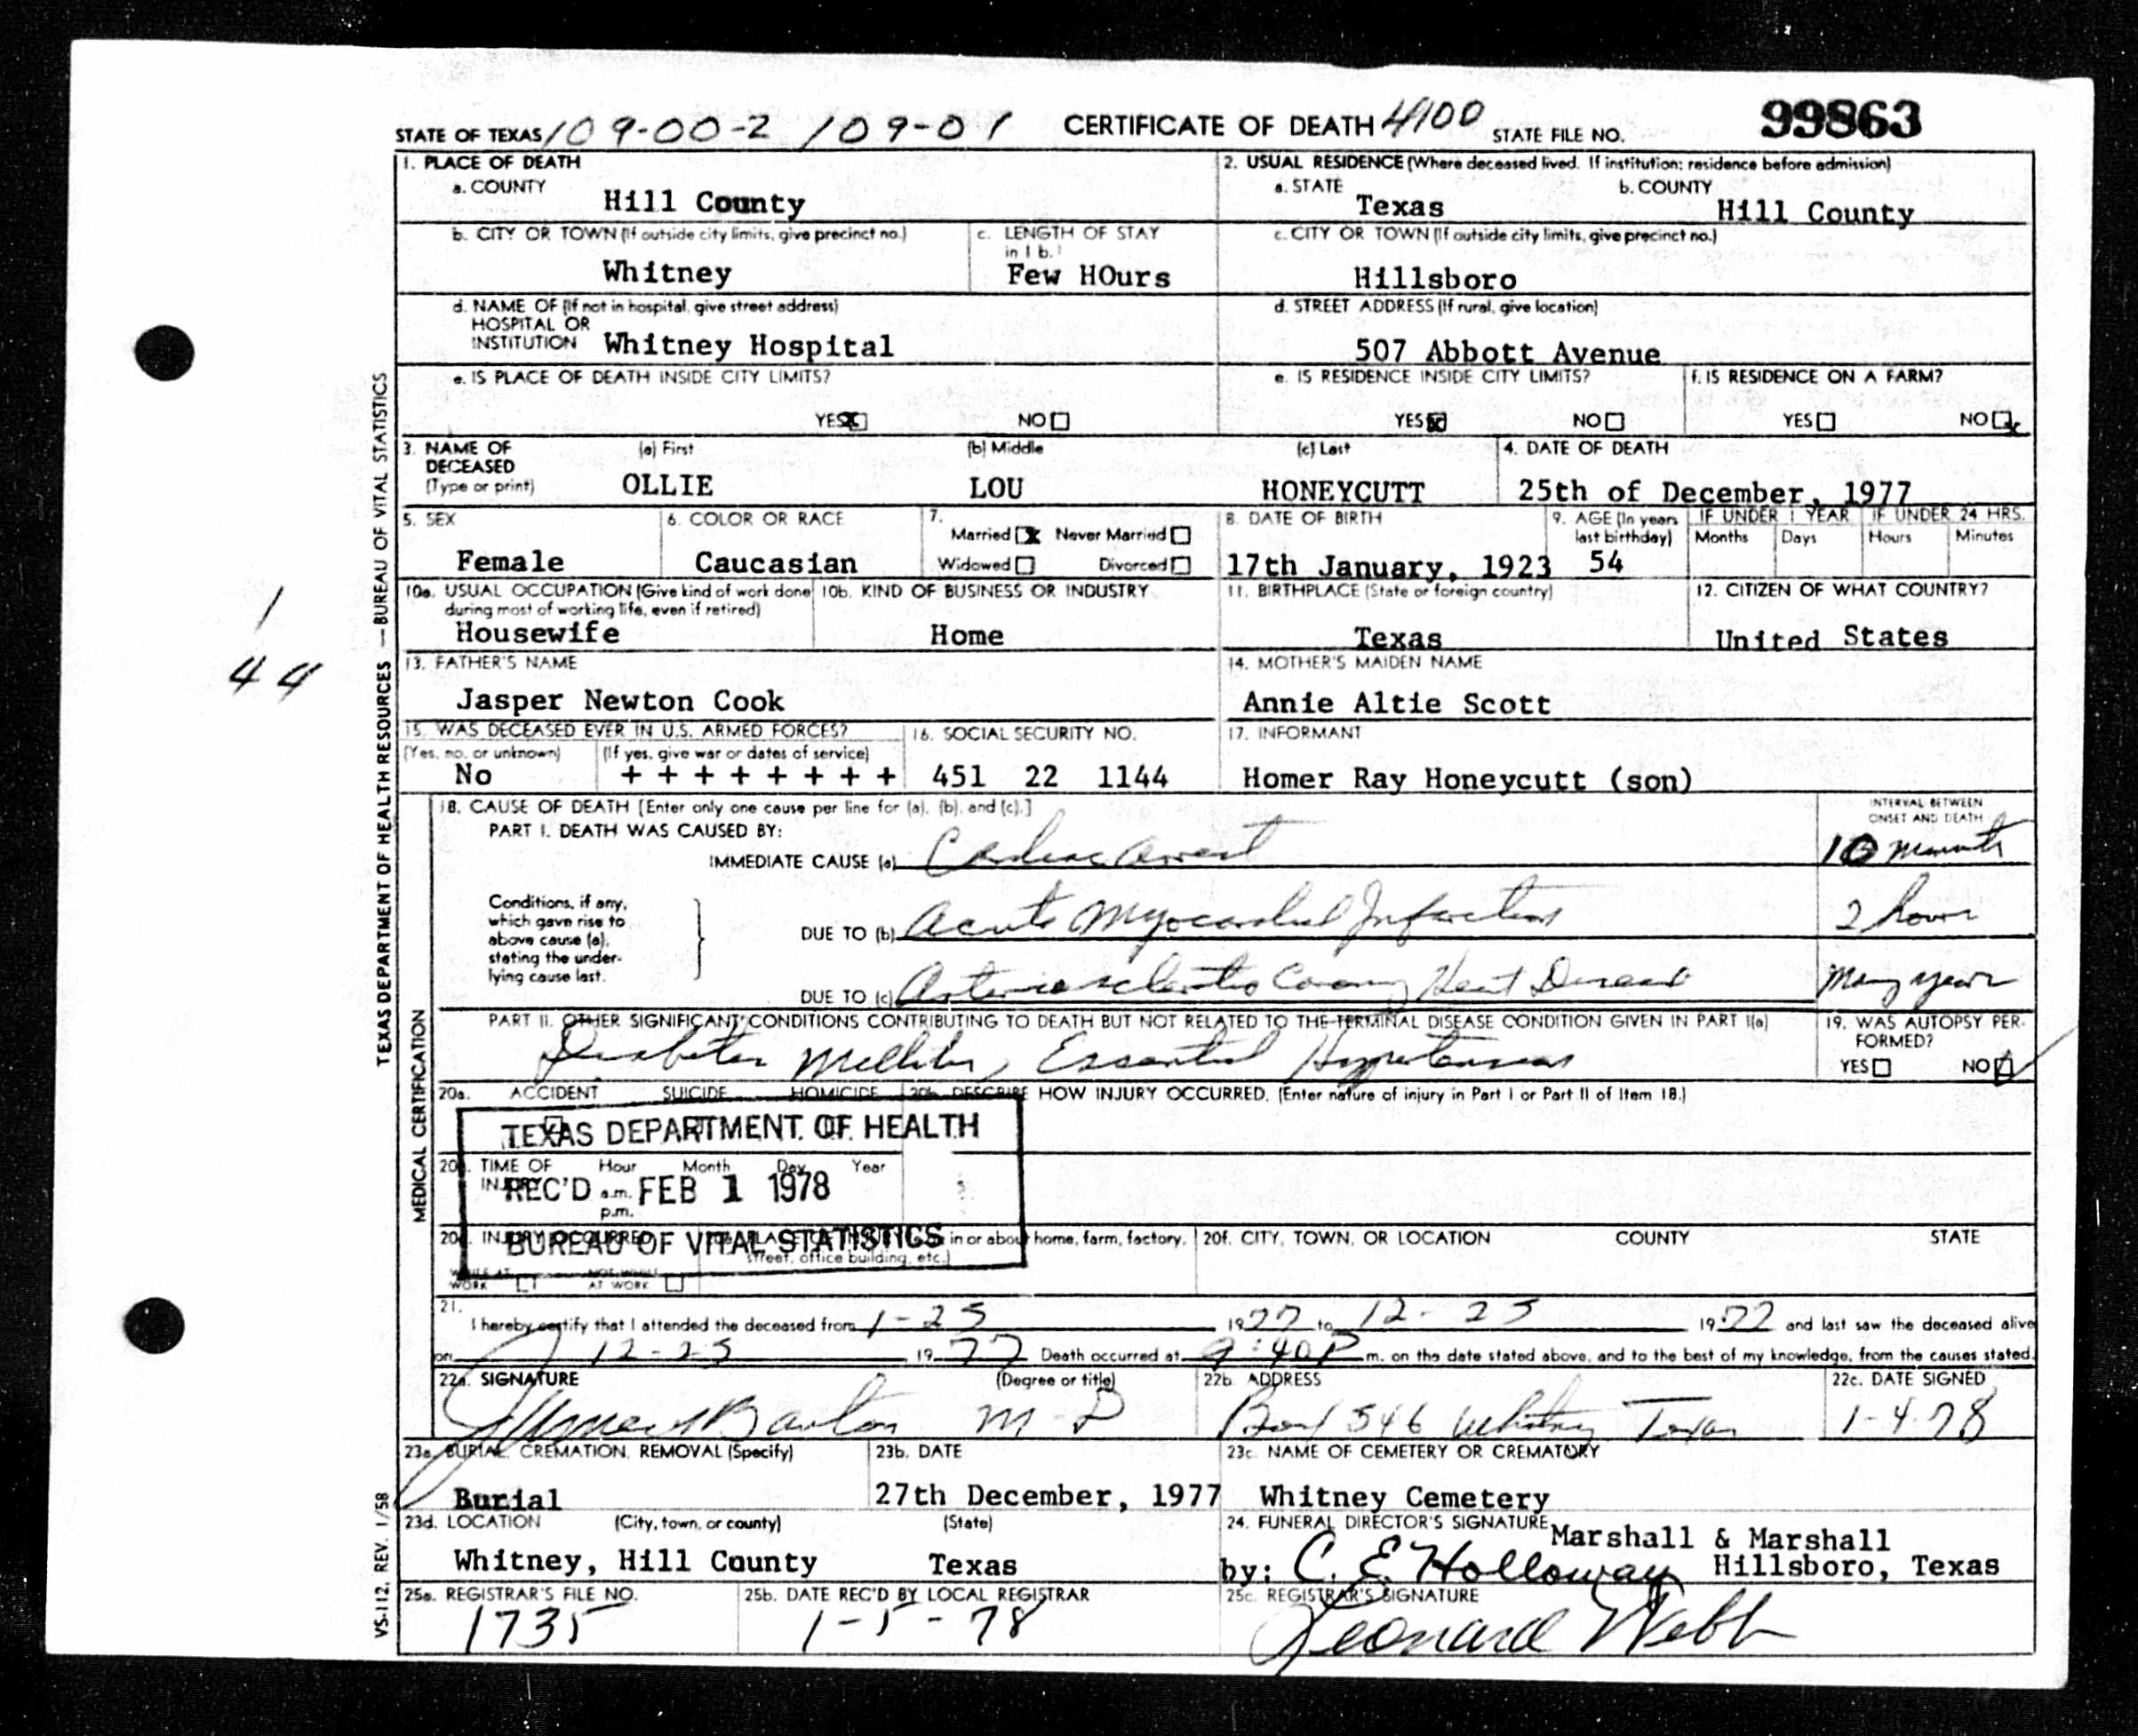 STATE OF TEXAS 109-00-2 109-01 CERTIFICATE OF DEATH 4100 STATE FILE NO. 99863
1. PLACE OF DEATH
a. COUNTY
Hill County
2. USUAL RESIDENCE (Where deceased lived. If institution: residence before admission)
a. STATE
Texas
b. COUNTY
Hill County
b. CITY OR TOWN (If outside city limits, give precinct no.)
Whitney
c. LENGTH OF STAY
in 1 b.
Few HOurs
c. CITY OR TOWN (If outside city limits, give precinct no.)
Hillsboro
d. NAME OF (If not in hospital, give street address)
HOSPITAL OR
INSTITUTION Whitney Hospital
d. STREET ADDRESS (If rural, give location)
507 Abbott Avenue
e. IS PLACE OF DEATH INSIDE CITY LIMITS?
YES NO
e. IS RESIDENCE INSIDE CITY LIMITS?
YES NO
f. IS RESIDENCE ON A FARM?
YES NO
3. NAME OF
DECEASED
(Type or print)
(a) First
OLLIE
(b) Middle
LOU
(c) Last
HONEYCUTT
4. DATE OF DEATH
25th of December, 1977
5. SEX
Female
6. COLOR OR RACE
Caucasian
7.
Married Never Married
Widowed Divorced
8. DATE OF BIRTH
17th January, 1923
9. AGE (In years
last birthday)
54
IF UNDER 1 YEAR
Months Days
IF UNDER 24 HRS.
Hours Minutes
10a. USUAL OCCUPATION (Give kind of work done
during most of working life, even if retired)
Housewife
10b. KIND OF BUSINESS OR INDUSTRY
Home
11. BIRTHPLACE (State or foreign country)
Texas
12. CITIZEN OF WHAT COUNTRY?
United States
13. FATHER'S NAME
Jasper Newton Cook
14. MOTHER'S MAIDEN NAME
Annie Altie Scott
15. WAS DECEASED EVER IN U.S. ARMED FORCES?
(Yes, no, or unknown) (If yes, give war or dates of service)
No + + + + + + + +
16. SOCIAL SECURITY NO.
451 22 1144
17. INFORMANT
Homer Ray Honeycutt (son)
18. CAUSE OF DEATH [Enter only one cause per line for (a), (b), and (c).]
INTERVAL BETWEEN
ONSET AND DEATH
PART I. DEATH WAS CAUSED BY:
IMMEDIATE CAUSE (a) Cardiac arrest 10 minutes
Conditions, if any,
which gave rise to
above cause (a),
stating the under-
lying cause last.
DUE TO (b) Acute Myocardial Infarction 2 hours
DUE TO (c) Arteriosclerotic Coronary Heart Disease Many years
PART II. OTHER SIGNIFICANT CONDITIONS CONTRIBUTING TO DEATH BUT NOT RELATED TO THE TERMINAL DISEASE CONDITION GIVEN IN PART I(a)
Diabetes Mellitus, Essential Hypertension
19. WAS AUTOPSY PER-
FORMED?
YES NO
20a. ACCIDENT SUICIDE HOMICIDE
20b. DESCRIBE HOW INJURY OCCURRED. (Enter nature of injury in Part I or Part II of Item 18.)
TEXAS DEPARTMENT OF HEALTH
REC'D FEB 1 1978
BUREAU OF VITAL STATISTICS
TIME OF Hour Month Day Year
a.m.
p.m.
in or about home, farm, factory,
street, office building, etc.)
WORK AT WORK
20f. CITY, TOWN, OR LOCATION COUNTY STATE
21.
I hereby certify that I attended the deceased from 1-25 1977 to 12-25 1977 and last saw the deceased alive
on 12-25 1977 Death occurred at 9:40P m. on the date stated above, and to the best of my knowledge, from the causes stated.
22a. SIGNATURE (Degree or title)
Barton M-D
22b. ADDRESS
Box 546 Whitney Texas
22c. DATE SIGNED
1-4-78
23a. BURIAL, CREMATION, REMOVAL (Specify)
Burial
23b. DATE
27th December, 1977
23c. NAME OF CEMETERY OR CREMATORY
Whitney Cemetery
23d. LOCATION (City, town, or county) (State)
Whitney, Hill County Texas
24. FUNERAL DIRECTOR'S SIGNATURE Marshall & Marshall
by: C. E. Holloway Hillsboro, Texas
25a. REGISTRAR'S FILE NO.
1735
25b. DATE REC'D BY LOCAL REGISTRAR
1-5-78
25c. REGISTRAR'S SIGNATURE
Leonard Webb
TEXAS DEPARTMENT OF HEALTH RESOURCES — BUREAU OF VITAL STATISTICS
MEDICAL CERTIFICATION
VS-112, REV. 1/58
1
44